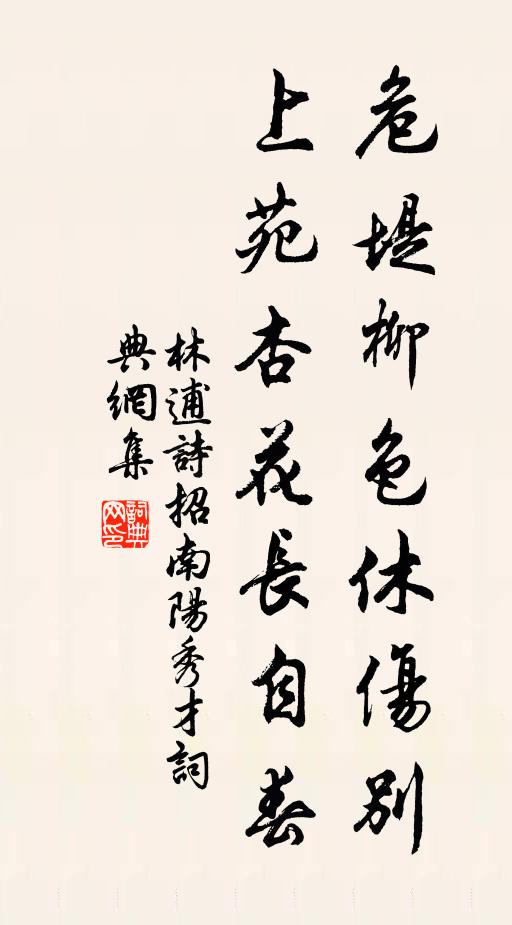 危堤柳色休傷別
上苑杏花長自春
林逋詩招南陽秀才詞
典網集
詞典
网印